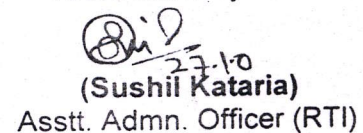 27.10
(Sushil Kataria)
Asstt. Admn. Officer (RTI)